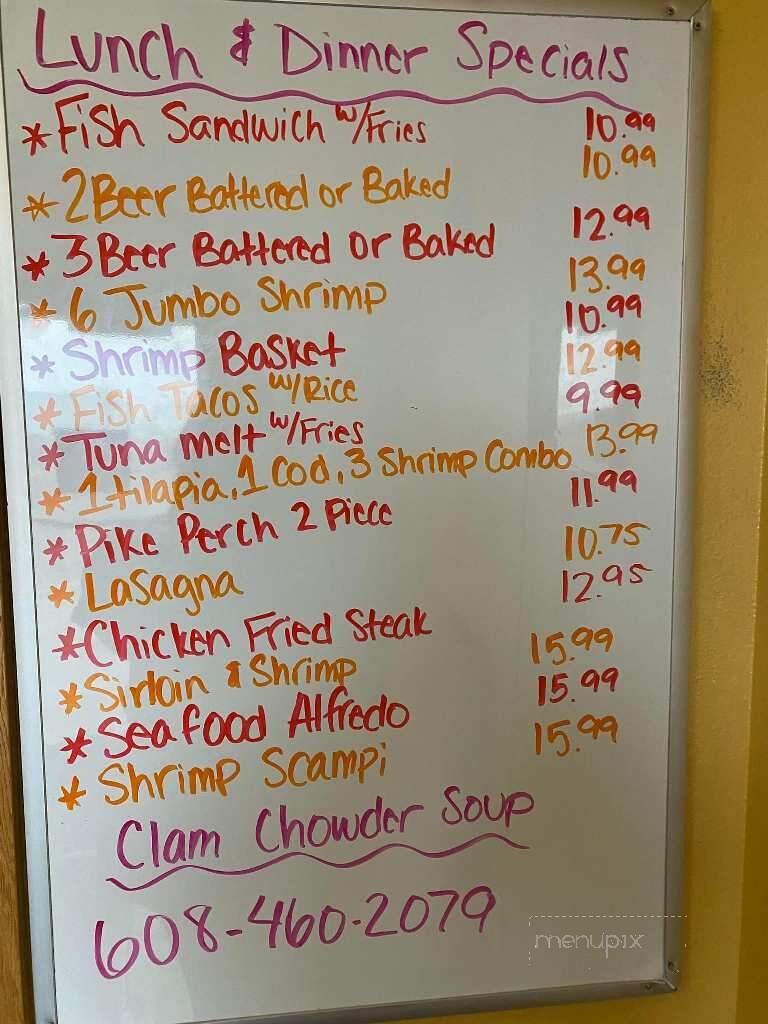 Lunch & Dinner Specials
* Fish Sandwich w/Fries 10.99
* 2 Beer Battered or Baked 10.99
* 3 Beer Battered or Baked 12.99
* 6 Jumbo Shrimp 13.99
* Shrimp Basket 10.99
* Fish Tacos w/Rice 12.99
* Tuna melt w/Fries 9.99
* 1 tilapia, 1 Cod, 3 Shrimp Combo 13.99
* Pike Perch 2 Piece 11.99
* Lasagna 10.75
* Chicken Fried Steak 12.95
* Sirloin & Shrimp 15.99
* Seafood Alfredo 15.99
* Shrimp Scampi 15.99
Clam Chowder Soup
608-460-2079
menupix